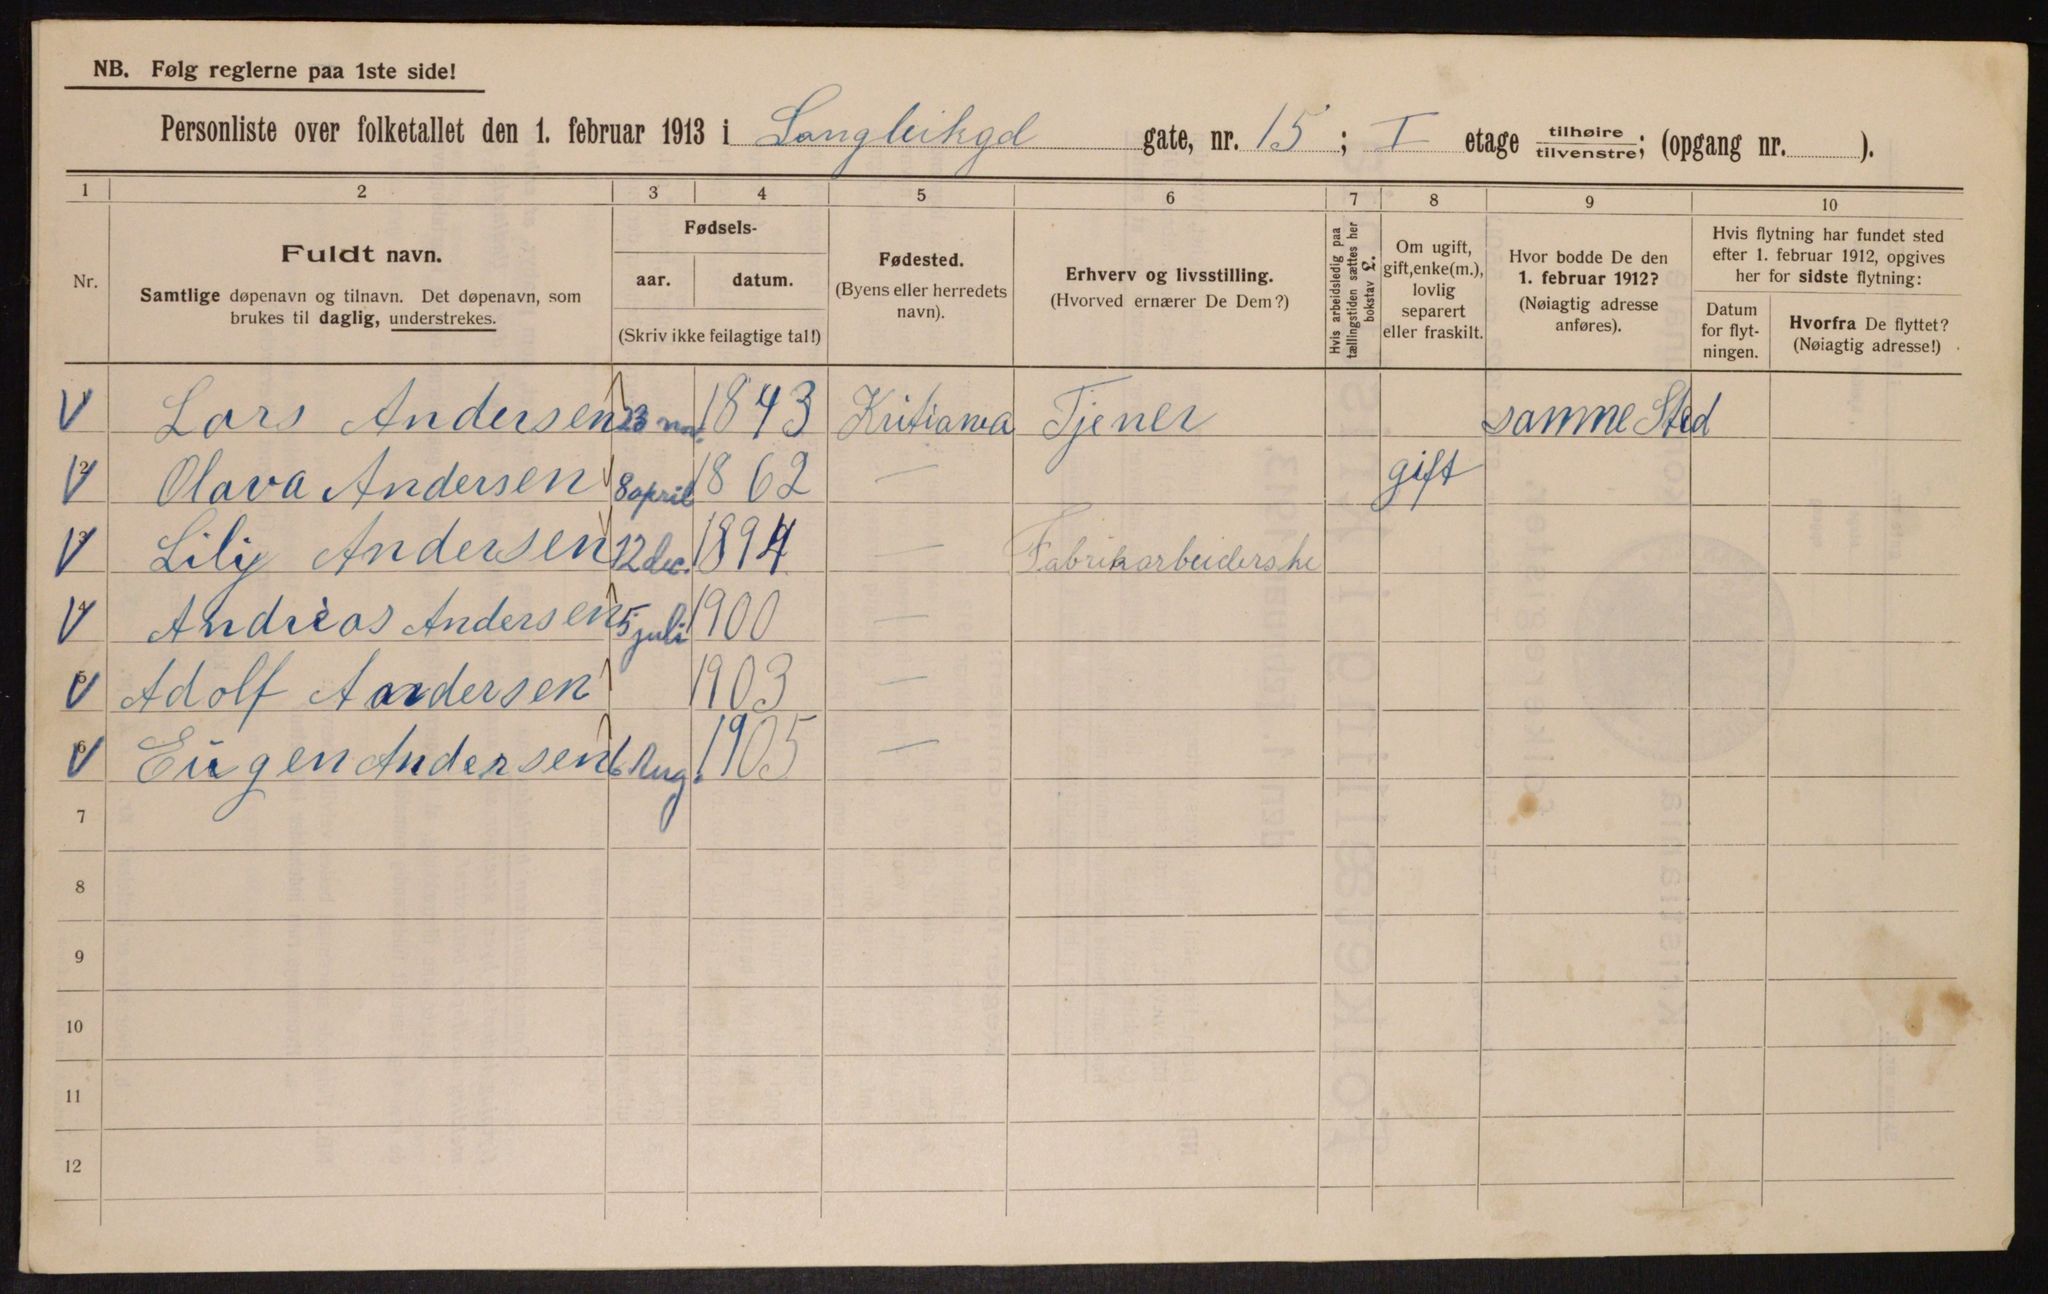 NB. Følg reglerne paa 1ste side!
Personliste over folketallet den 1. februar 1913 i Langleikgd gate, nr. 15; I etage tilhøire/tilvenstre; (opgang nr. ).
1 2 3 4 5 6 7 8 9 10
Nr.
Fuldt navn.
Samtlige døpenavn og tilnavn. Det døpenavn, som
brukes til daglig, understrekes.
Fødsels-
aar. datum.
(Skriv ikke feilagtige tal!)
Fødested.
(Byens eller herredets
navn).
Erhverv og livsstilling.
(Hvorved ernærer De Dem?)
Hvis arbeidsledig paa
tællingstiden sættes her
bokstav £.
Om ugift,
gift, enke(m.),
lovlig
separert
eller fraskilt.
Hvor bodde De den
1. februar 1912?
(Nøiagtig adresse
anføres).
Hvis flytning har fundet sted
efter 1. februar 1912, opgives
her for sidste flytning:
Datum
for flyt-
ningen.
Hvorfra De flyttet?
(Nøiagtig adresse!)
Lars Andersen 23 nov. 1843 Kritiania Tjener samme Sted
2 Olava Andersen 8 april 1862 — gift
3 Lily Andersen 12 dec. 1894 — Fabrikarbeiderske
4 Andreas Andersen 5 juli 1900 —
5 Adolf Andersen 1903 —
6 Eugen Andersen 6 Aug. 1905 —
7
8
9
10
11
12